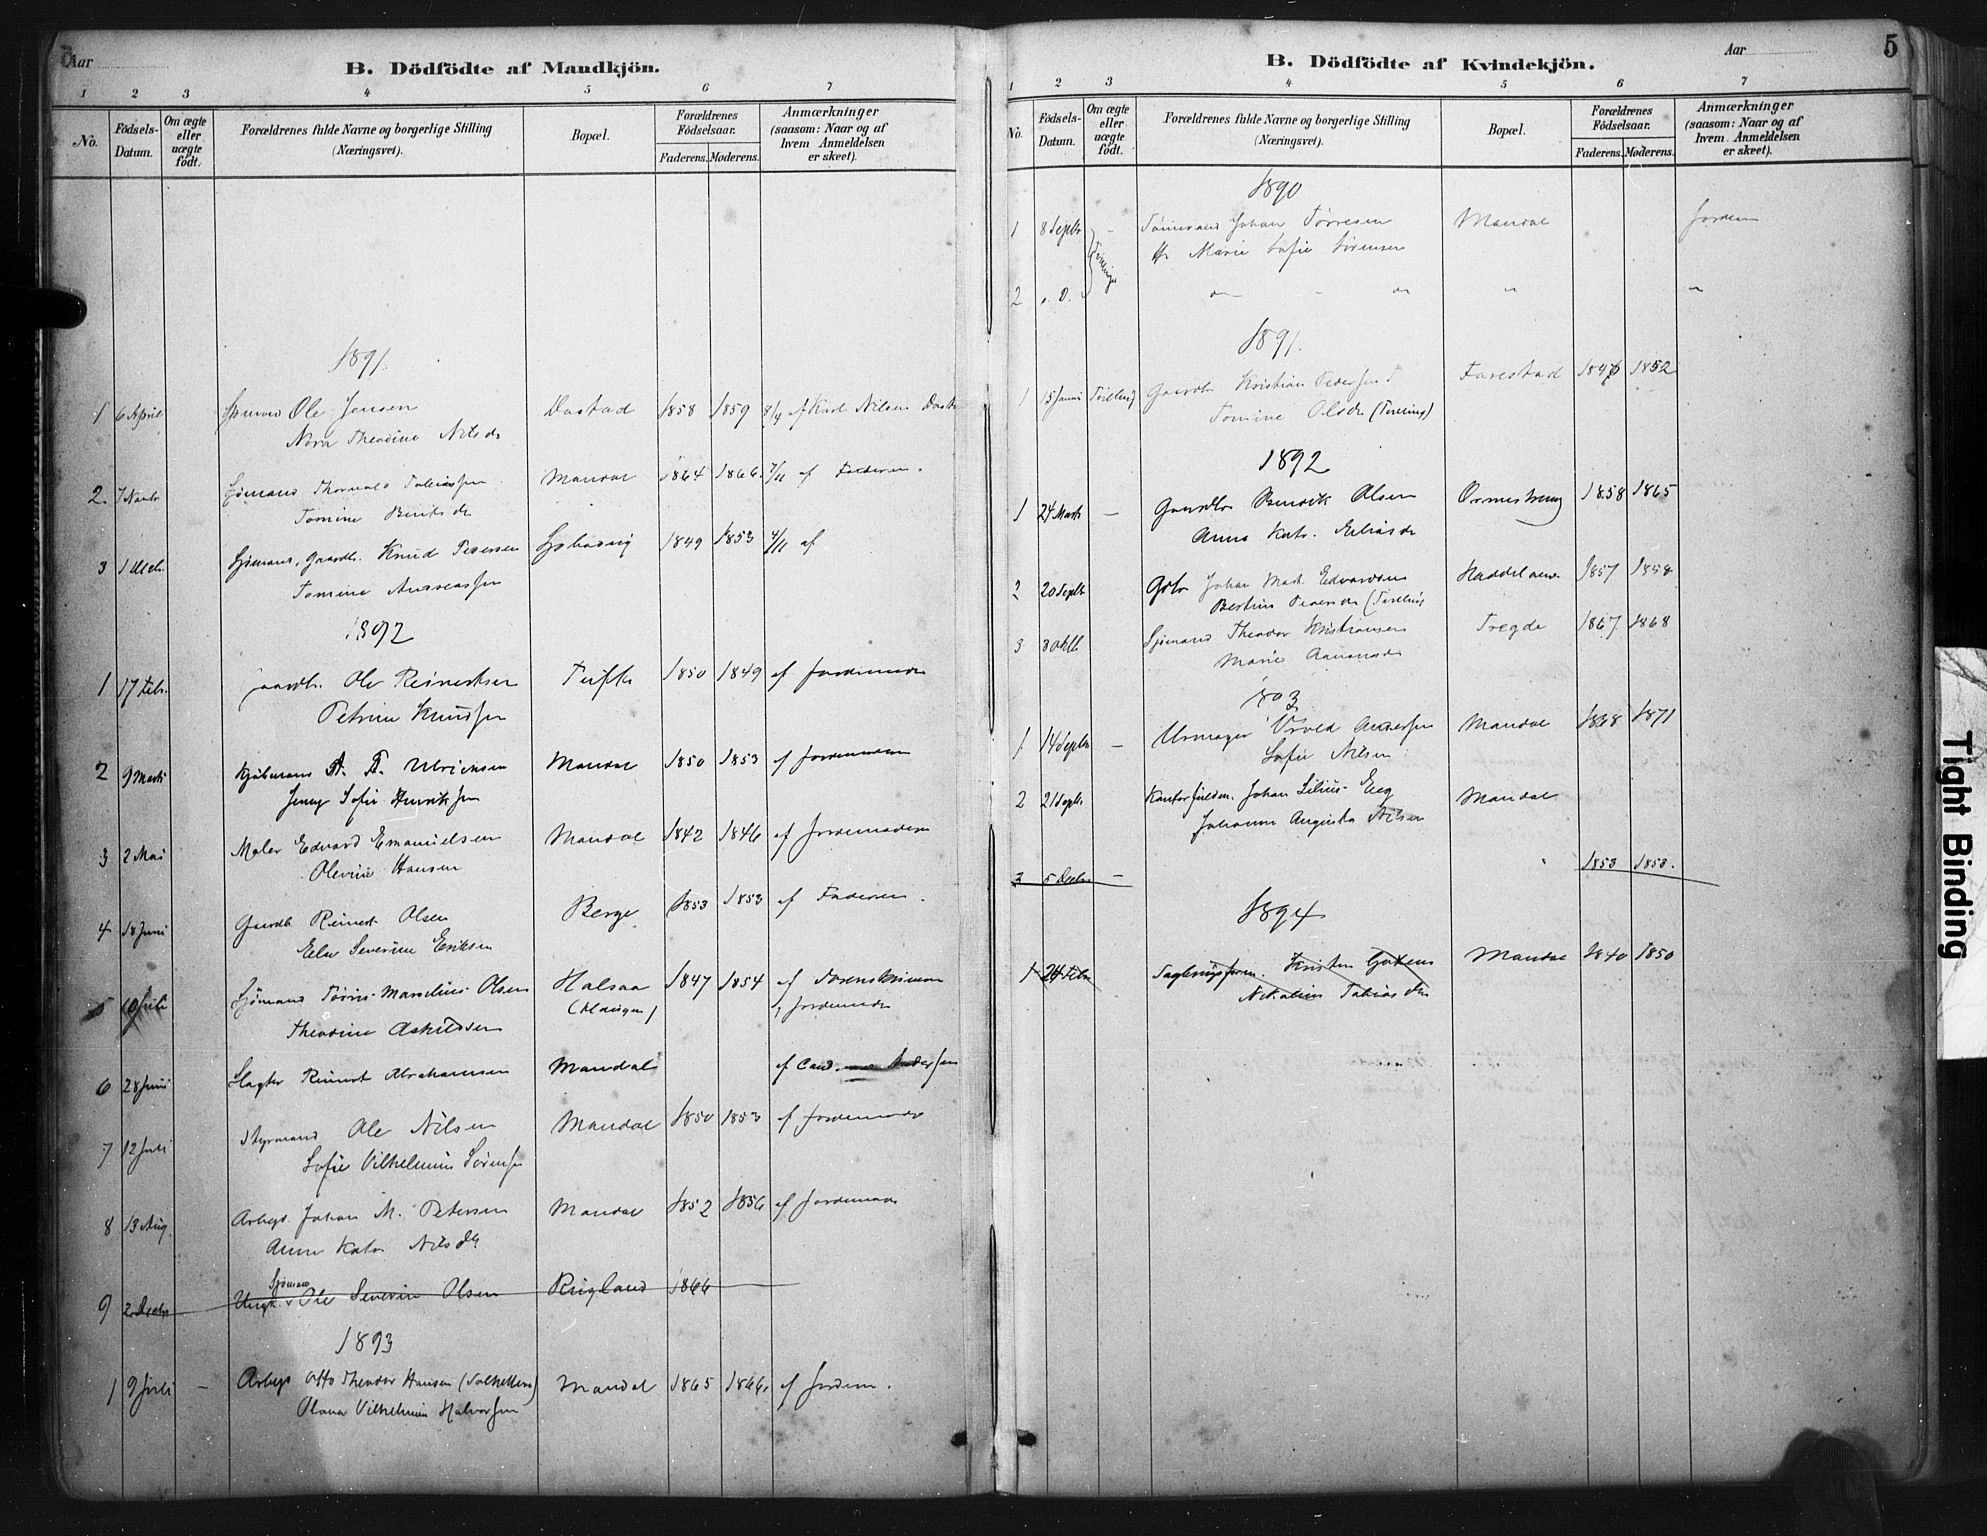 Aar
B. Dödfödte af Mandkjön.
1 2 3 4 5 6 7
No.
Födsels-Datum.
Om ægte eller uægte födt.
Forældrenes fulde Navne og borgerlige Stilling (Næringsvei).
Bopæl.
Forældrenes Födselsaar.
Faderens. Moderens.
Anmærkninger (saasom: Naar og af hvem Anmeldelsen er skeet).
1891.
1 6 April Ole Jensen Dastad 1858 1859 8/4 af Karl Nilsen
Nora Theodine Nilsdr
2. 7 Novbr Sjømand Thorvald Tobiassen Mandal 1864 1866. 7/11 af Faderen.
Tomine Berntsdr
3 1 Decb. Sjømand, Gaardbr. Knud Pedersen 1849 1853 4/11 af
Tomine Andreassen
1892
1 17 Febr. Gaardbr. Ole Reinertsen Tufte 1850 1849 af Jordemodr
Petrine Knudsen
2 9 Marts Kjøbmand A. T. Ulriksen Mandal 1850 1853 af Jordemoderen
Jenny Sofie Henriksen
3 2 Mai Maler Edvard Emanuelsen Mandal 1842 1846 af Jordemoderen
Olevine Hansen
4 18 Juni Gaardb Reinert Olsen Berge 1853 1853 af Faderen.
Elen Severine Eriksen
5 10 Juli Sjømand Tørris Marselius Olsen Halsaa 1847 1854 af
Theodine Askildsen (Haugen) Jordemodr
6 28 Juni Slagter Reinert Abrahamsen Mandal af Cand. Andersen
7 12 Juli Styrmand Ole Nilsen Mandal 1850 1853 af Jordemodr
Sofie Vilhelmine Sørensen
8 13 Aug. Arbejd. Johan M. Petersen Mandal 1852 1856 af Jordemodr
Anne Katr. Nilsdtr
Sjømand
9 2 Decbr Ungk. Ole Severin Olsen Rugland 1866
1893
1 9 Juli – Arbejd Otto Theodor Hansen Mandal 1865 1866. af Jordem.
Olava Vilhelmine Halvorsen
Aar
5
B. Dödfödte af Kvindekjön.
1 2 3 4 5 6 7
No.
Födsels-Datum.
Om ægte eller uægte födt.
Forældrenes fulde Navne og borgerlige Stilling (Næringsvei).
Bopæl.
Forældrenes Födselsaar.
Faderens. Moderens.
Anmærkninger (saasom: Naar og af hvem Anmeldelsen er skeet).
1890
1 8 Septbr – Tømmermand Johan Tørresen Mandal Jordem
Marie Sofie Sørensen
Tvillinger
2 s. D. do – do " "
1891.
1 15 Juni Tvilling Gaardbr Kristian Pedersen Farestad 1846 1852
Tomine Olsdr (Tvilling)
1892
1 24 Marts – Gaardbr Bendik Olsen Ormestrand 1858 1865
Anna Katr. Eliasdr
2 20 Septbr Gdbr Johan Mart. Edvardsen 1857 1858
Bertine Pedersdr (Tvilling
3 3 Oktb. Sjømand Theodor Kristiansen Tregde 1867 1868
Marie Aanonsdr
1893
1 14 Septbr – Urmager Andersen Mandal 1868 1871
Sofie Nilsen
2 21 Septbr Kontorfuldm. Johan Silius Eeg Mandal
Johanne Augusta Nilsen
3 5 Decbr – 1853 1853.
1894
1 24 Febr Kristen Mandal 1840 1850
Tobiasdr
Tight Binding